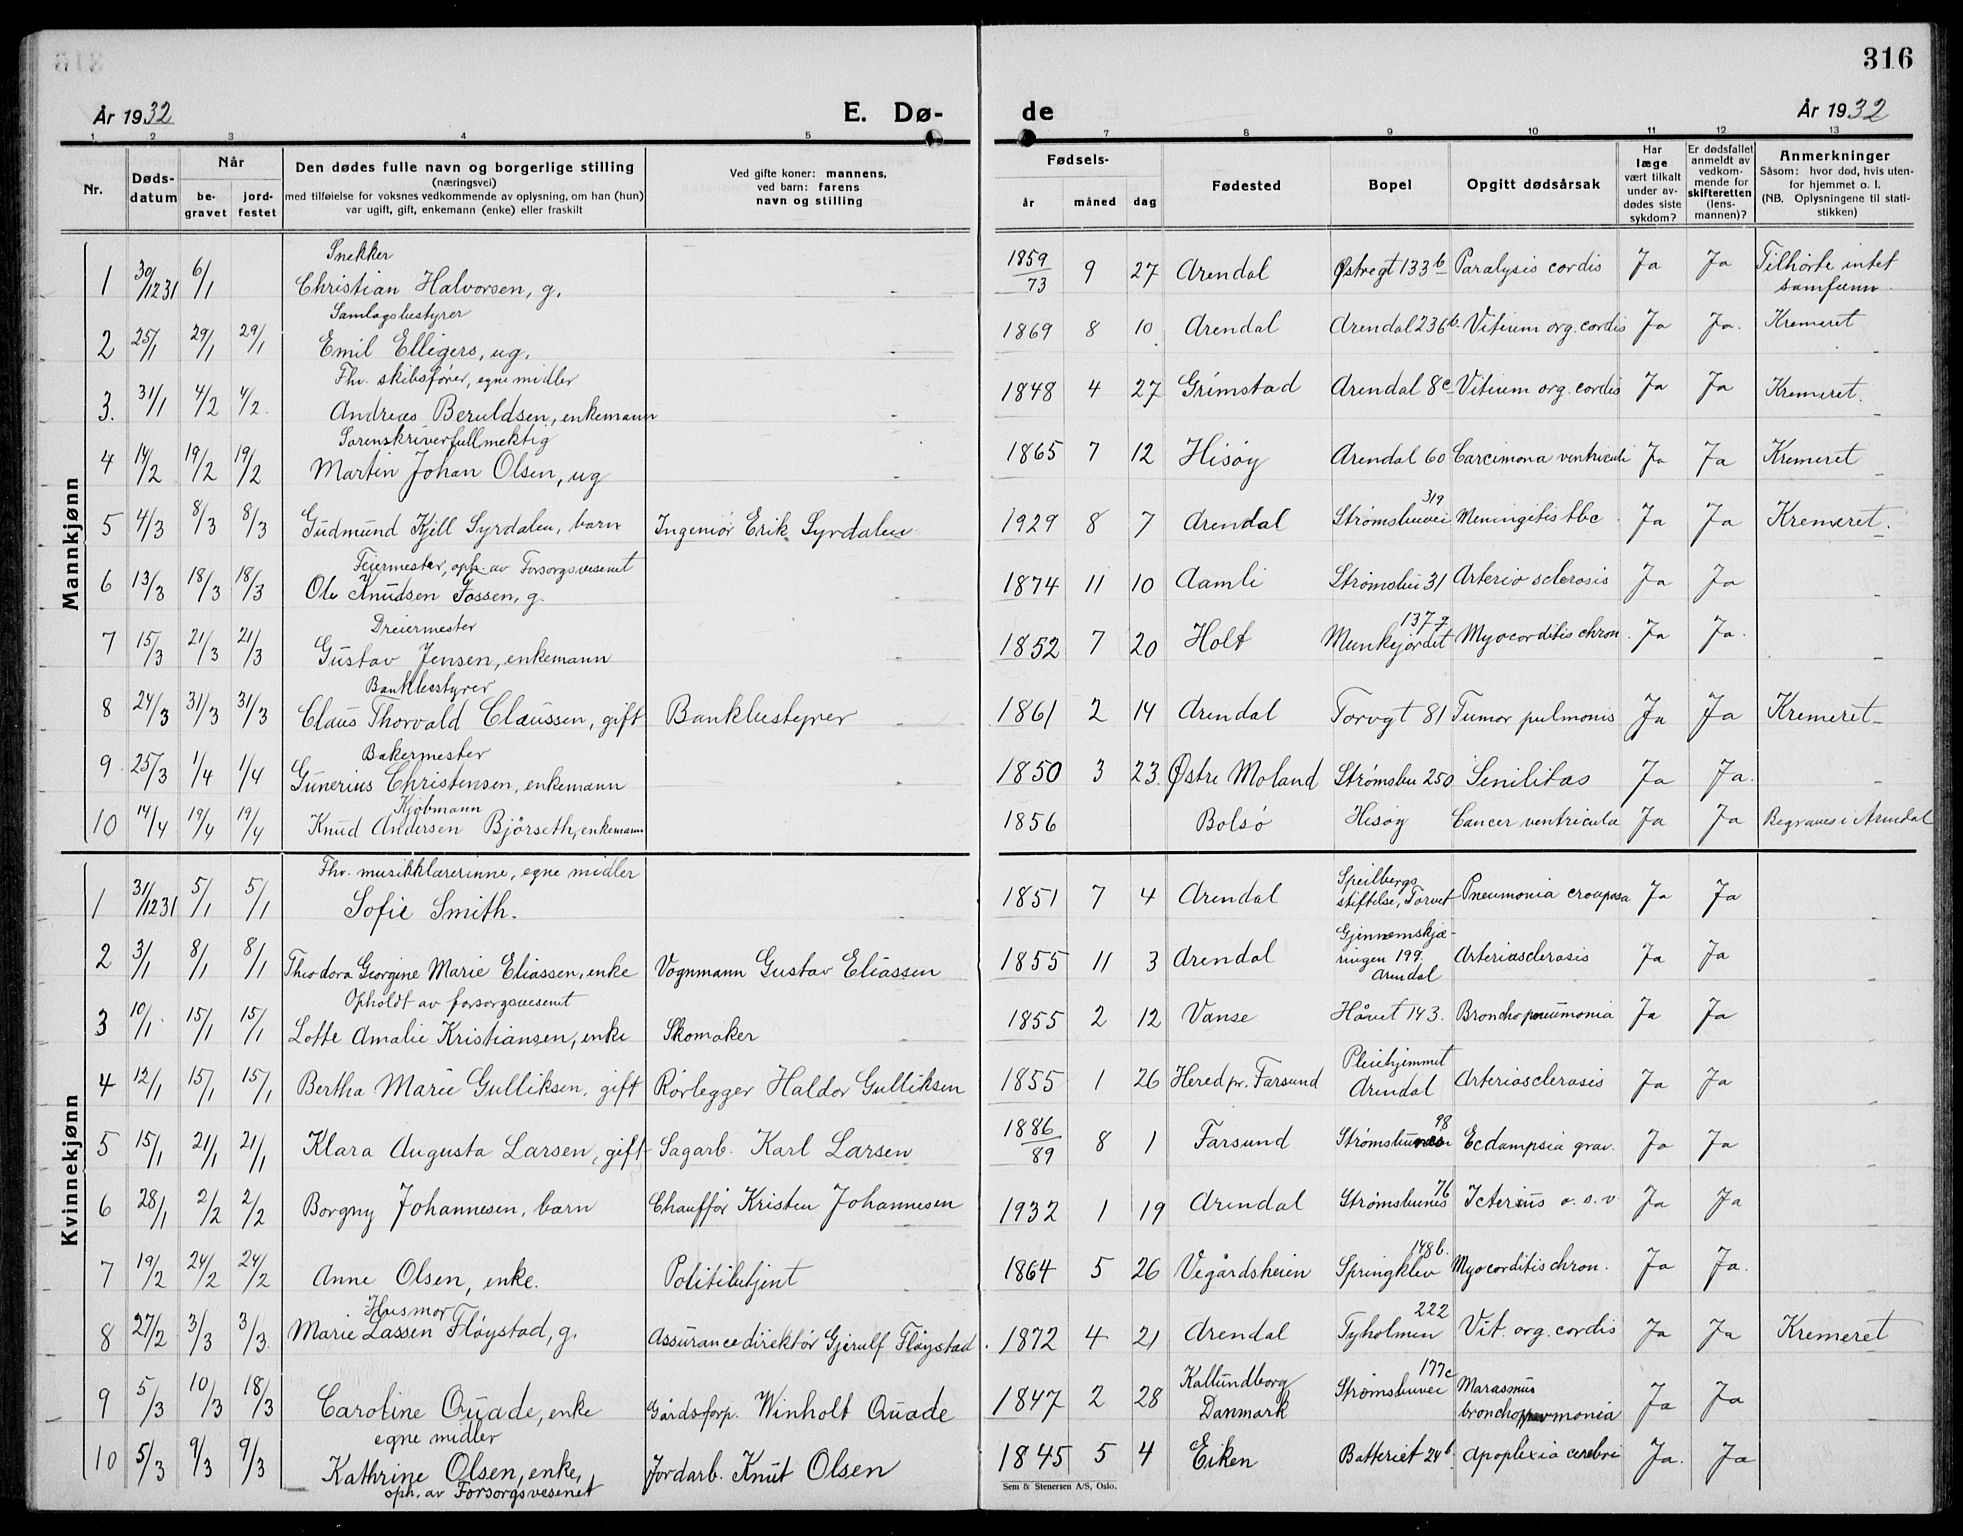 316
År 1932
E. Dø-
de
År 1932
1 2 3 4 5 7 8 9 10 11 12 13
Nr.
Døds-
datum
Når
be-
gravet
jord-
festet
Den dødes fulle navn og borgerlige stilling
(næringsvei)
med tilføielse for voksnes vedkommende av oplysning, om han (hun)
var ugift, gift, enkemann (enke) eller fraskilt
Ved gifte koner: mannens,
ved barn: farens
navn og stilling
Fødsels-
år måned dag
Fødested
Bopel
Opgitt dødsårsak
Har
læge
vært tilkalt
under av-
dødes siste
sykdom?
Er dødsfallet
anmeldt av
vedkom-
mende for
skifteretten
(lens-
mannen)?
Anmerkninger
Såsom: hvor død, hvis uten-
for hjemmet o. l.
(NB. Oplysningene til stati-
stikken)
Mannkjønn
Snekker
1 30/12 31 6/1 Christian Halvorsen, g. 1859/73 9 27 Arendal Østregt 133b Paralysis cordis Ja Ja Tilhørte intet
samfunn
Samlagsbestyrer
2 25/1 29/1 29/1 Emil Elligers, ug. 1869 8 10 Arendal Arendal 236b Vitium org. cordis Ja Ja. Kremeret
Fhv. skibsfører, egne midler
3. 31/1 4/2 4/2. Andreas Beruldsen, enkemann 1848 4 27 Grimstad Arendal 8c Vitium org. cordis Ja Ja Kremeret.
Sorenskriverfullmektig
4 14/2 19/2 19/2 Martin Johan Olsen, ug 1865 7 12 Hisøy Arendal 60 Carcimona ventriculi Ja Ja Kremeret
5 4/3 8/3 8/3 Gudmund Kjell Syrdalen, barn Ingeniør Erik Syrdalen 1929 8 7 Arendal Strømsbuvei 319 Meningitis tbc Ja Ja Kremeret.
Feiermester, oph. av Forsorgsvesenet
6 13/3 18/3 18/3 Ole Knudsen Fossen, g. 1874 11 10 Aamli Strømsbu 31 Arterio sclerosis Ja Ja
Dreiermester
7 15/3 21/3 21/3 Gustav Jensen, enkemann 1852 7 20 Holt Munkejordet 137g Myocorditis chron. Ja Ja.
Bankbestyrer
8 24/3 31/3 31/3 Claus Thorvald Claussen, gift Bankbestyrer 1861 2 14 Arendal Torvgt 81 Tumor pulmonis Ja Ja Kremeret
Bakermester
9. 25/3 1/4 1/4 Gunerius Christensen, enkemann 1850 3 23. Østre Moland Strømsbu 250 Senilitas Ja Ja.
Kjøbmann
10 14/4 19/4 19/4 Knud Andersen Bjørseth, enkemann 1856 Bolsø Hisøy Cancer ventricula Ja Ja Begraves i Arendal
Kvinnekjønn
Fhv. musikklærerinne, egne midler
1 31/12 31 5/1 5/1 Sofie Smith. 1851 7 4 Arendal Speilbergs
stiftelse, Torvet Pneumonia crouposa Ja Ja
2 3/1 8/1 8/1 Theodora Georgine Marie Eliassen, enke Vognmann Gustav Eliassen 1855 11 3 Arendal Gjennemskjæ-
ringen 199.
Arendal Arteriosclerosis Ja Ja
Opholdt av forsorgsvesenet
3 10/1. 15/1 15/1 Lotte Amalie Kristiansen, enke Skomaker 1855 2 12 Vanse Håvet 143. Bronchopneumonia Ja Ja
4 12/1 15/1 15/1 Bertha Marie Gulliksen, gift Rørlegger Haldor Gulliksen 1855 1 26 Hered pr. Farsund Pleiehjemmet
Arendal Arteriosclerosis Ja Ja
5 15/1 21/1 21/1 Klara Augusta Larsen, gift Sagarb. Karl Larsen 1886/89 8 1 Farsund 98 Ecdampsia grav. Ja Ja
6 28/1 2/2 2/2 Borgny Johannesen, barn Chauffør Kristen Johannesen 1932 1 19 Arendal Strømsbunes 76 Icterus o.s.v Ja Ja
7 19/2 24/2 24/2 Anne Olsen, enke. Politibetjent 1864 5 26 Vegårdsheien Springklev 148b. Myocorditis chron. Ja Ja.
Husmor
8 27/2 3/3 3/3. Marie Lassen Fløystad, g. Assurancedirektør Gjerulf Fløystad. 1872 4 21 Arendal Tyholmen 222 Vit. org. cordis Ja Ja Kremeret
9 5/3 10/3 18/3 Caroline Quade, enke Gårdsforp. Winholt Quade 1847 2 28 Kallundborg
Danmark Strømsbuvei 177c Marasmus
bronchopneumonia Ja Ja
egne midler
10 5/3 9/3 9/3 Kathrine Olsen, enke, Jordarb. Knut Olsen 1845 5 4 Eiken Batteriet 24b Apoplexia cerebri Ja. Ja
oph. av Forsorgsvesenet
Sem & Stenersen A/S, Oslo.